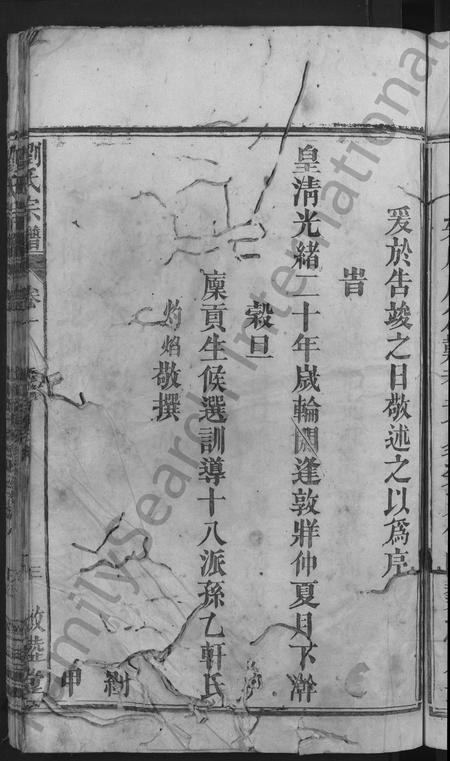 爰於告竣之日敬述之以爲序
旹
皇清光緒二十年歲輪閼逢敦牂仲夏月下澣
穀旦
廩貢生候選訓導十八派孫乙軒氏
灼焰敬撰
劉氏宗譜
卷一
敦睦堂
FamilySearch International